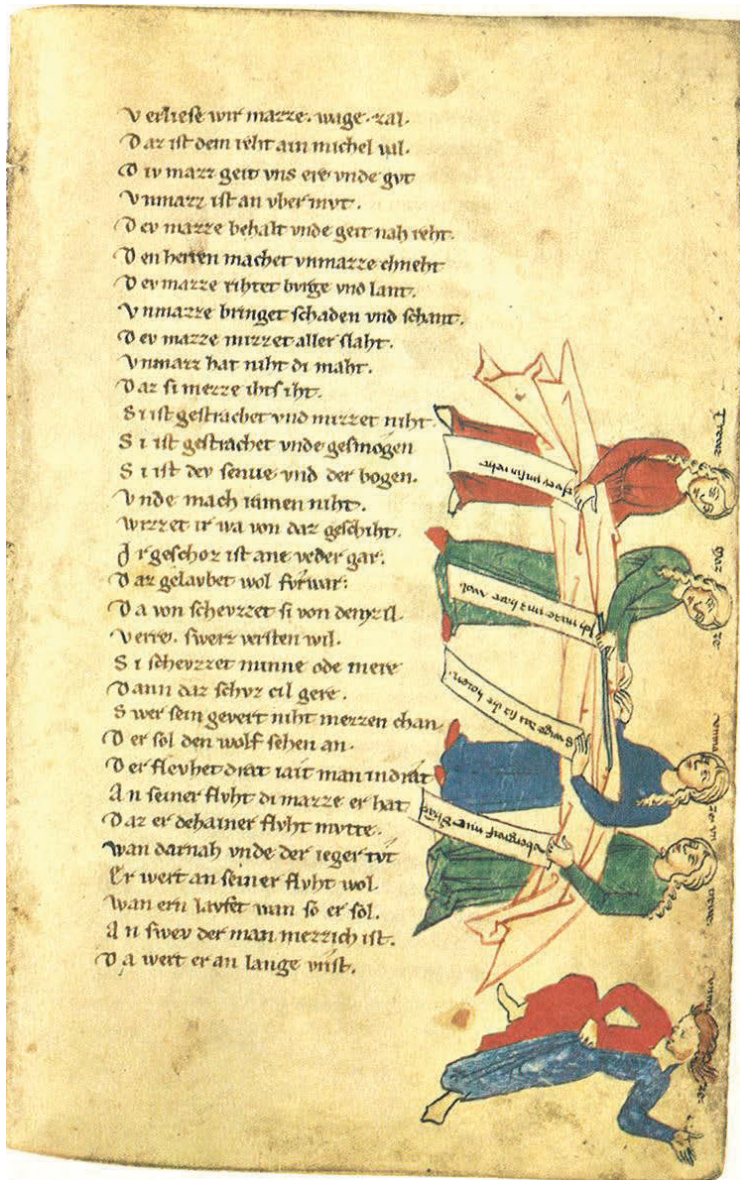 Verliese wir mazze. wage. zal.
Daz ist dem reht ain michel val.
Div mazz geit vns ere vnde gvt
Vnmazz ist an vber mvt.
Dev mazze behalt vnde geit nah reht.
Den herren machet vnmazze chneht
Dev mazze rihtet bvrge vnd lant.
Vnmazze bringet schaden vnd schant.
Dev mazze mizzet aller slaht.
Vnmazz hat niht di maht.
Daz si mezze ihts iht.
Si ist gestrachet vnd mizzet niht.
Si ist gestrachet vnde gesmogen
Si ist dev senue vnd der bogen.
Vnde mach ramen niht.
Wizzet ir wa von daz geschiht.
Ir geschoz ist ane veder gar.
Daz gelavbet wol fvrwar:
Da von schevzzet si von dem zil
Verre. swerz versten wil.
Si schevzzet minne ode mere
Dann daz schvz cil gere.
Swer sein gevert niht mezzen chan
Der sol den wolf sehen an.
Der flevhet drat iait man in drat
An seiner flvht di mazze er hat
Daz er dehainer flvht mvtte.
wan darnah vnde der ieger tvt
Er wert an seiner flvht wol.
wan ern lavfet wan so er sol.
An swev der man mezzich ist.
Da wert er an lange vrist.
Trewe
maz
ze
vnma
ze
vn
trewe.
vnma
zze.
ich mizze vnz her wol.
Swige du la